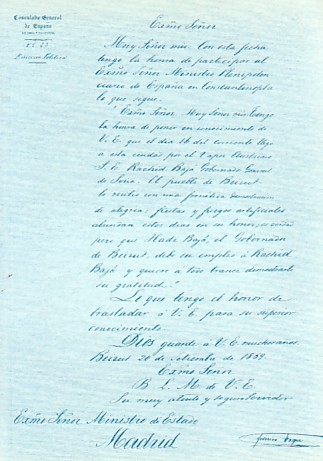 Consulado General
de España
Nº 27
Direccion Politica
Exmo Señor
Muy Señor mio. Con esta fecha
tengo la honra de participar al
Exmo Señor Ministro Plenipoten
ciario de España en Constantinopla
lo que sigue.
" Exmo Señor. Muy Señor mio. Tengo
la honra de poner en conocimiento de
V. E. que el dia 16 del corriente llegó
a esta ciudad por el Vapor
S. E. Rachid Bajá Gobernador General
de Siria. El pueblo de Beirut
le recibio con una
de alegria, fiestas y fuegos artificiales
estos dias en su honor,
pero que Bajá, el Gobernador
de Beirut, debe su empleo á Rachid
Bajá y quiere á todo trance demostrarle
su gratitud."
Lo que tengo el honor de
trasladar á V. E. para su superior
conocimiento.
Dios guarde á V. E. muchos años.
Beirut 20 de Setiembre de
Exmo Señor
B. L. M. de V. E.
Su muy atento y seguro servidor
Exmo Señor Ministro de Estado
Madrid